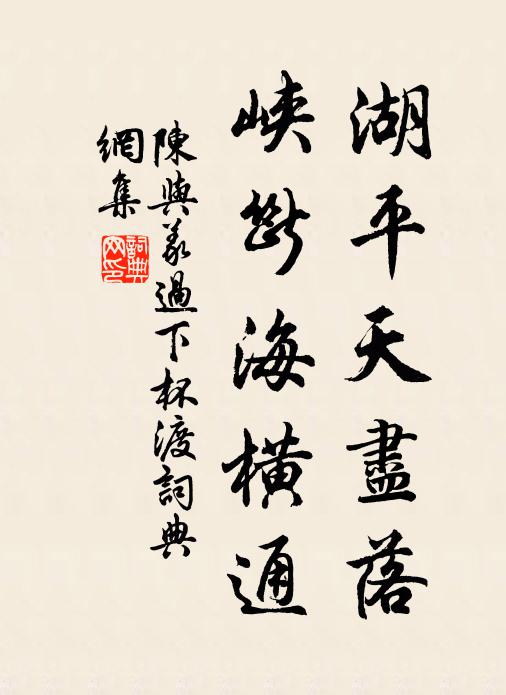 湖平天盡落
峽斷海橫通
陳與義過下杯渡詞典
網集
詞典网印